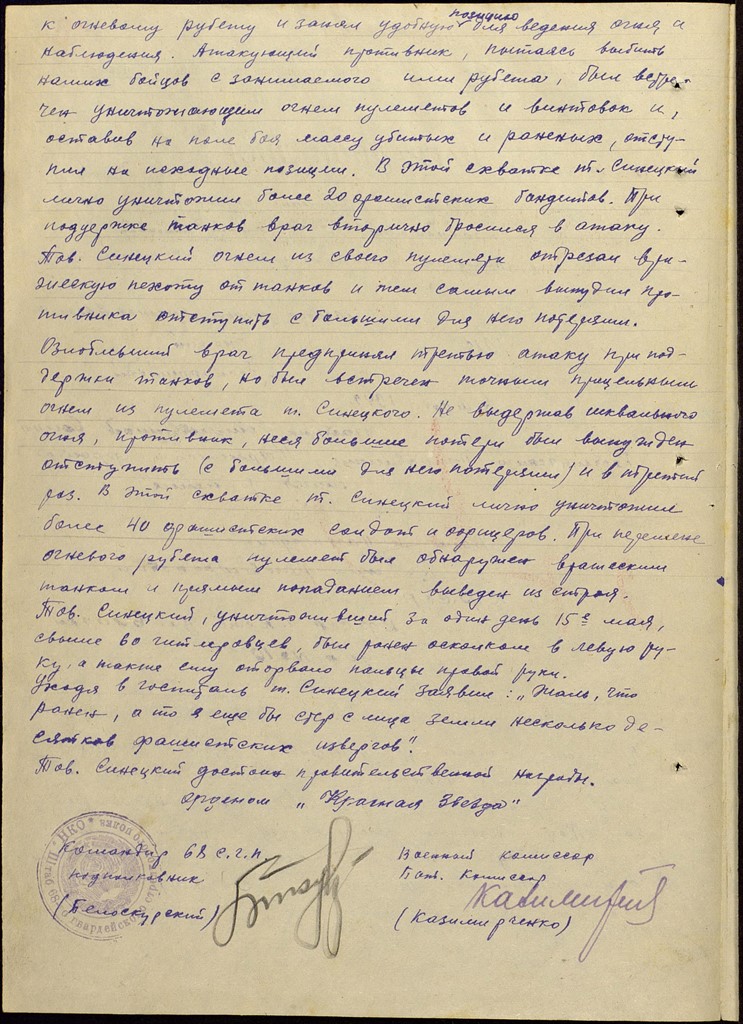 к огневому рубежу и занял удобную позицию для ведения огня и
наблюдения. Атакующий противник, пытаясь выбить
наших бойцов с занимаемого ими рубежа, был встре-
чен уничтожающим огнем пулеметов и винтовок и,
оставив на поле боя массу убитых и раненых, отсту-
пил на исходные позиции. В этой схватке т. Синецкий
лично уничтожил более 20 фашистских бандитов. При
поддержке танков враг вторично бросился в атаку.
Тов. Синецкий огнем из своего пулемета отрезал вра-
жескую пехоту от танков и тем самым вынудил про-
тивника отступить с большими для него потерями.
Озлобевший враг предпринял третью атаку при под-
держки танков, но был встречен точным прицельным
огнем из пулемета т. Синецкого. Не выдержав шквального
огня, противник, неся большие потери был вынужден
отступить (с большими для него потерями) и в третий
раз. В этой схватке т. Синецкий лично уничтожил
более 40 фашистских солдат и офицеров. При перемене
огневого рубежа пулемет был обнаружен вражеским
танком и прямым попаданием выведен из строя.
Тов. Синецкий, уничтоживший за один день 15го мая,
свыше 60 гитлеровцев, был ранен осколком в левую ру-
ку, а также ему оторвало пальцы правой руки.
Уходя в госпиталь т. Синецкий заявил: „Жаль, что
ранен, а то я еще бы стер с лица земли несколько де-
сятков фашистских извергов".
Тов. Синецкий достоин правительственной награды.
орденом „Красная Звезда"
Командир 68 с.г.п.
подполковник
(Белоскурский)
Военный комиссар
Бат. Комиссар
(Казимирченко)
НКО
Штаб
гвардейского стр